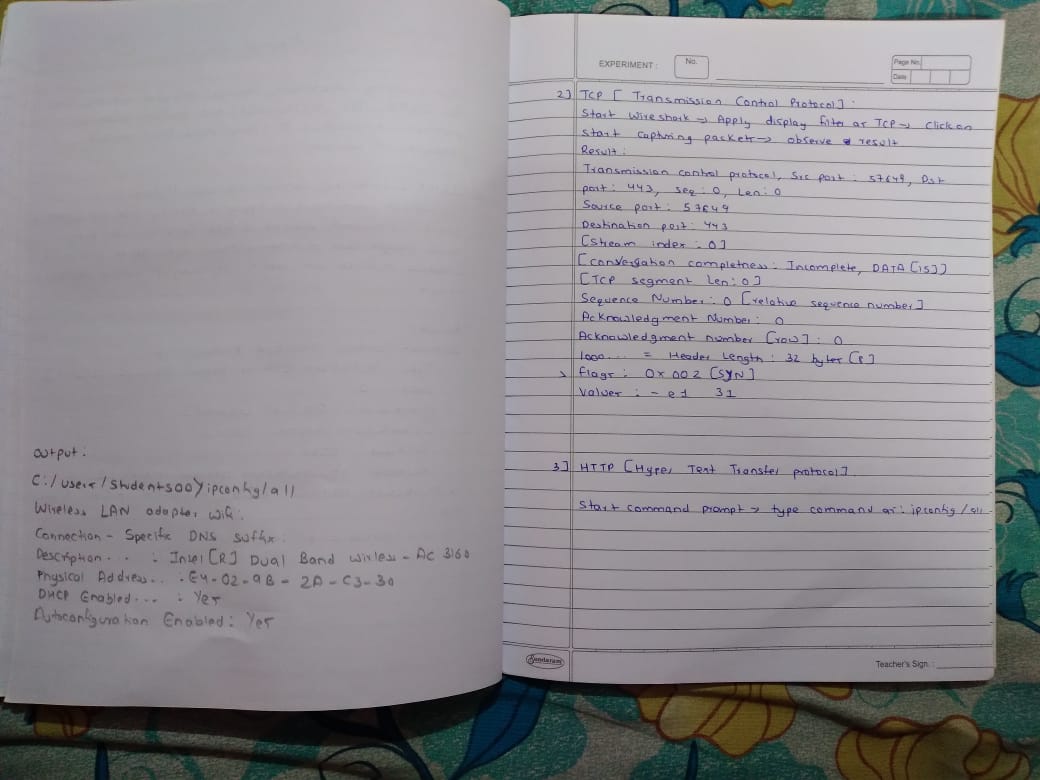 output:
C:/users/students00>ipconfig/all
Wireless LAN adapter wifi:
Connection - Specific DNS suffix:
Description. . . : Intel [R] Dual Band wirless - AC 3160
Physical Address. . . : E4-02-9B-2A-C3-30
DHCP Enabled... : Yes
Autoconfiguration Enabled: Yes
EXPERIMENT :
No.
Page No.
Date
2] TCP [ Transmission Control Protocol] :
Start wireshark → Apply display filter as TCP → click on
start capturing packets → observe result
Result:
Transmission control protocol, Src port : 57649, Dst
port : 443, seq : 0, Len : 0
Source port : 57649
Destination port : 443
[Stream index : 0]
[conversation completness : Incomplete, DATA [15]]
[TCP segment Len : 0]
Sequence Number : 0 [relative sequence number]
Acknowledgment Number : 0
Acknowledgment number [row] : 0
1000.... = Header Length : 32 bytes [8]
> flags : 0x002 [SYN]
Values : - e1 31
3] HTTP [Hyper Text Transfer protocol]
Start command prompt → type command as : ipconfig /all
Sundaram
Teacher's Sign. :